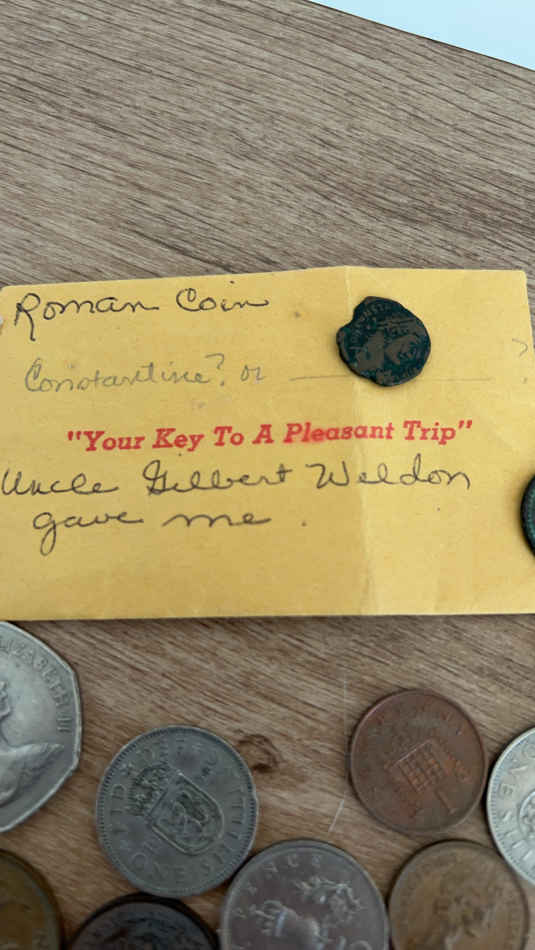 Roman Coin
Constantine? or ?
"Your Key To A Pleasant Trip"
Uncle Gilbert Weldon
gave me.
ELIZABETH II
ONE
PENCE
ONE